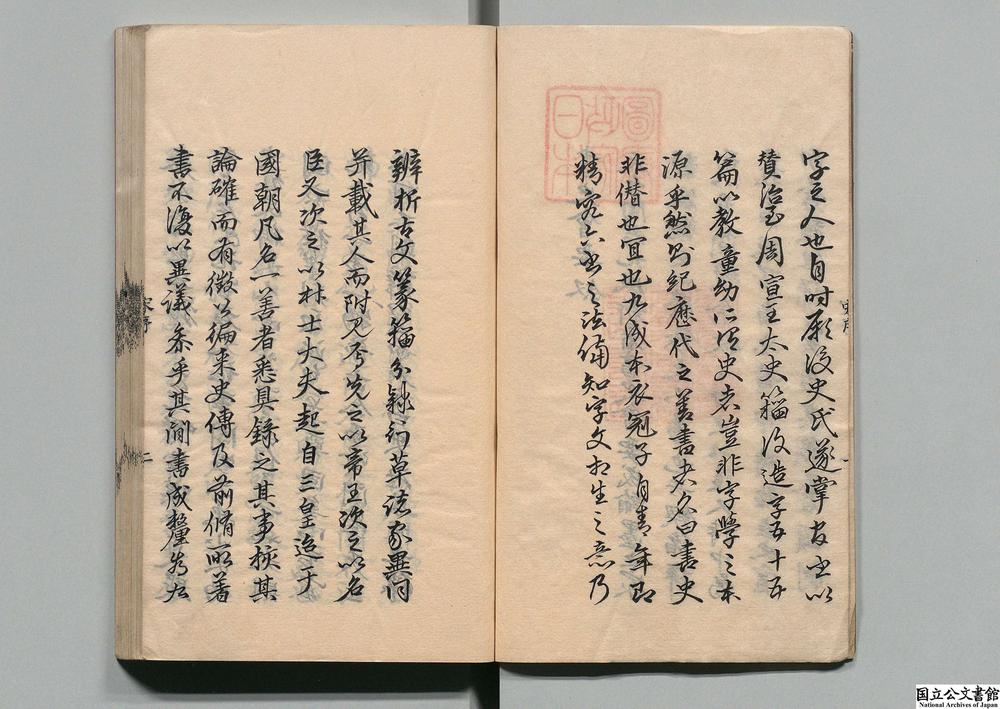 字之人也自時厥後史氏遂掌官書以
贊治至周宣王太史籀復造字五十五
篇以教童幼所謂史者豈非字學之本
源乎然則紀歷代之善書者名曰書史
非僭也宜也九成本衣冠子自青年即
精究六書之法備知字文相生之意乃
辨析古文篆籀分隸行草諸家異同
并載其人而附見焉先之以帝王次之以名
臣又次之以材士大夫起自三皇迄于
國朝凡名一善者悉具錄之其事核其
論確而有徵以徧来史傳及前脩所著
書不復以異議忝乎其間書成釐為九
宋序
一
宋序
二
國立公文書館
National Archives of Japan